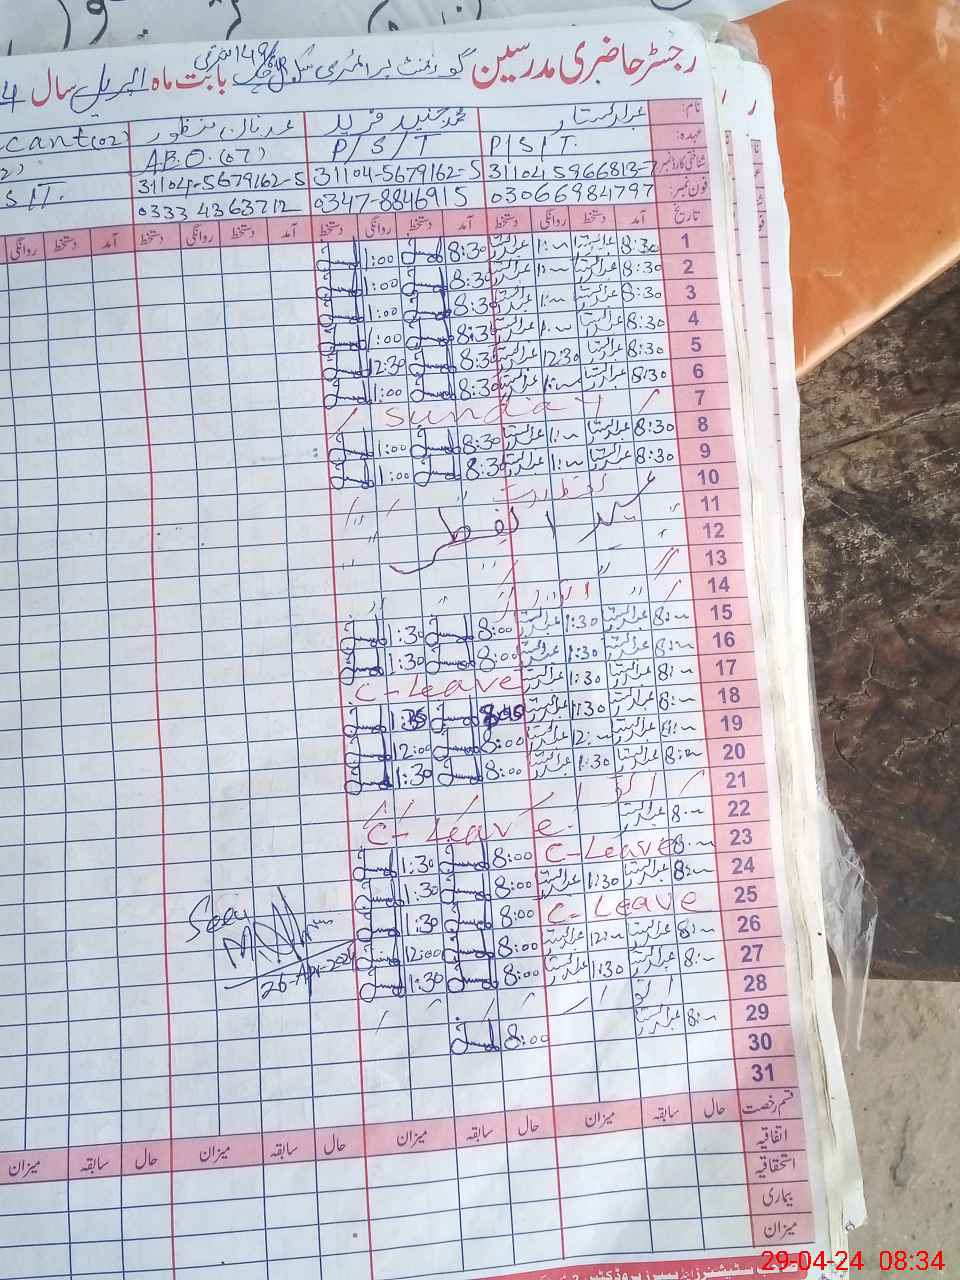 رجسٹر حاضری مدرسین گورنمنٹ پرائمری سکول بابت ماہ اپریل سال
نام: عبدالستار محمد جنید فرید عدنان منظور
عہدہ: P/S/T. P/S/T A.E.O. (07) cant(02)
شناختی کارڈ نمبر 31104-5679162-5 31104-5679162-5
فون نمبر: 03066984797 0347-8846915 0333 4363712
تاریخ آمد دستخط روانگی دستخط آمد دستخط روانگی دستخط آمد دستخط روانگی دستخط آمد دستخط روانگی
1 8:30 عبدالستار 1:00 عبدالستار 8:30 1:00
2 8:30 عبدالستار 1:00 عبدالستار 8:30 1:00
3 8:30 عبدالستار 1:00 عبدالستار 8:30 1:00
4 8:30 عبدالستار 1:00 عبدالستار 8:30 1:00
5 8:30 عبدالستار 12:30 عبدالستار 8:30 12:30
6 8:30 عبدالستار 1:00 عبدالستار 8:30 1:00
7 Sunday
8 8:30 عبدالستار 1:00 عبدالستار 8:30 1:00
9 8:30 عبدالستار 1:00 عبدالستار 8:30 1:00
10
11 عید الفطر
12
13
14 اتوار
15 8:00 عبدالستار 1:30 عبدالستار 8:00 1:30
16 8:00 عبدالستار 1:30 عبدالستار 8:00 1:30
17 8:00 عبدالستار 1:30 عبدالستار C-Leave
18 8:00 عبدالستار 1:30 عبدالستار
19 8:00 عبدالستار 12:00 عبدالستار 8:00 12:00
20 8:00 عبدالستار 1:30 عبدالستار 8:00 1:30
21 اتوار
22 8:00 عبدالستار C-Leave
23 8:00 C-Leave 8:00 1:30
24 8:00 عبدالستار 1:30 عبدالستار 8:00 1:30
25 C-Leave 8:00 1:30
26 8:00 عبدالستار 12:00 عبدالستار 8:00 12:00
27 8:00 عبدالستار 1:30 عبدالستار 8:00 1:30
28 اتوار
29 8:00 عبدالستار 8:00
30
31
Seen
26-Apr-2024
قسم رخصت حال سابقہ میزان حال سابقہ میزان حال سابقہ میزان حال سابقہ میزان
اتفاقیہ
استحقاقیہ
بیماری
میزان
29-04-24 08:34